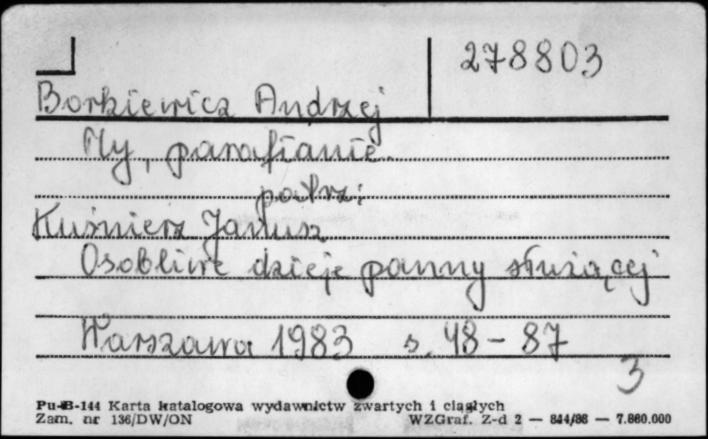 278803
Borkiewicz Andrzej
My, parafianie.
patrz:
Kuśnierz Janusz
Osobliwe dzieje panny służącej
Warszawa 1983 s. 48-87
3
Pu-B-144 Karta katalogowa wydawnictw zwartych i ciągłych
Zam. nr 136/DW/ON WZGraf. Z-d 2 — 844/86 — 7.860.000